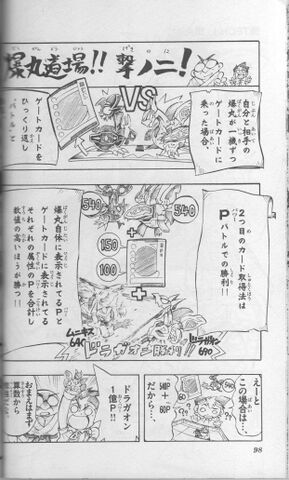 爆丸道場!! 撃ノ二!
VS
自分と相手の
爆丸が一機ずつ
ゲートカードに
乗った場合、
ゲートカードを
ひっくり返し
“バトル”と
2つ目のカード取得法は
Pバトルでの勝利!!
540
540
150
100
爆丸本体に表示されてるPと
ゲートカードに表示されてる
それぞれの属性のPを合計し
数値の高いほうが勝つ!!
640
ドラガオン勝利!!
ドラガオン
690
えーと
この場合は…
540P
+
60P
だから…、
ドラガオン
1億P!!
おまえはまず
算数から
98